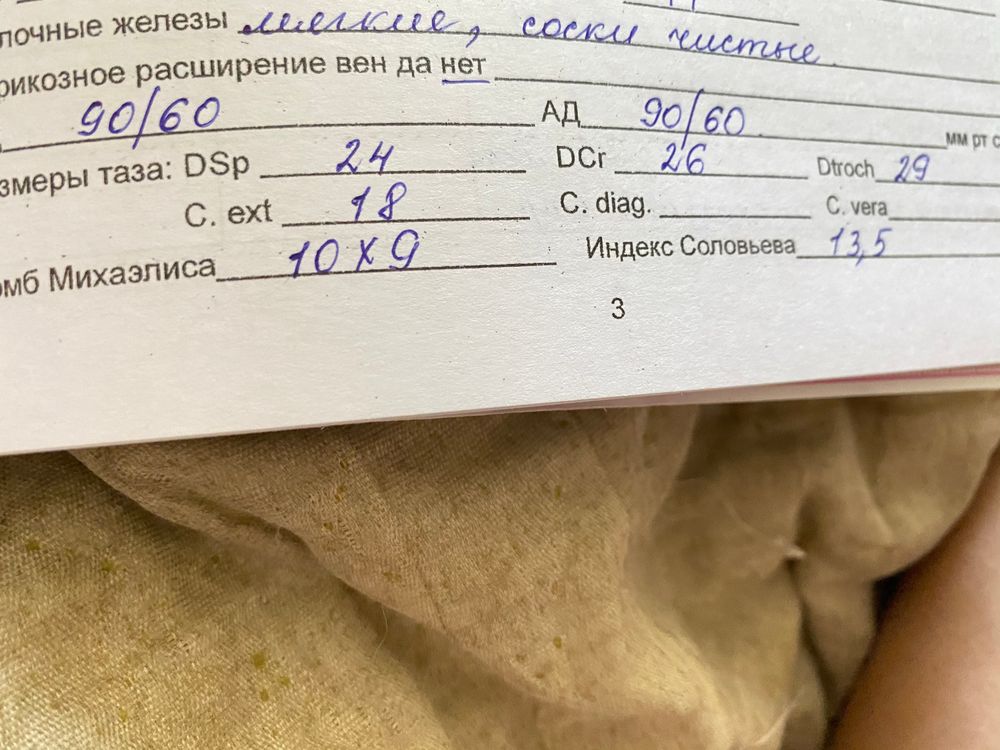 лочные железы мягкие, соски чистые.
рикозное расширение вен да нет
90/60 АД 90/60 мм рт с
змеры таза: DSp 24 DCr 26 Dtroch 29
C. ext 18 C. diag. C. vera
омб Михаэлиса 10 х 9 Индекс Соловьева 13,5
3